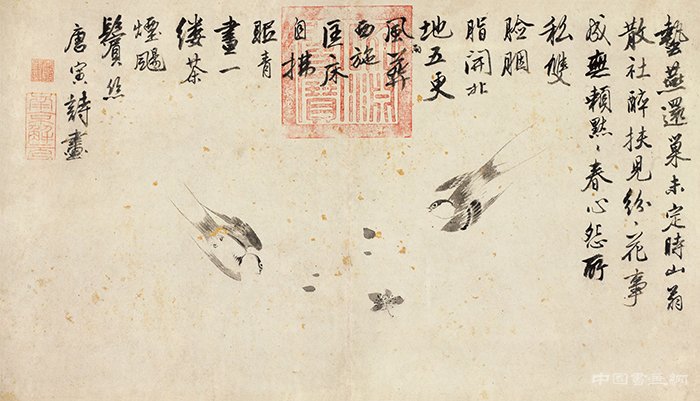 藝燕還巢未定時山翁
散社醉扶兒紛、花事
成無賴默、春心怨所
私雙
臉胭
脂開北
地五更
風葬
西施
匡床
自拂
眠青
晝一
縷茶
煙颺
鬢絲
唐寅詩畫
南京解元
中国書畫網